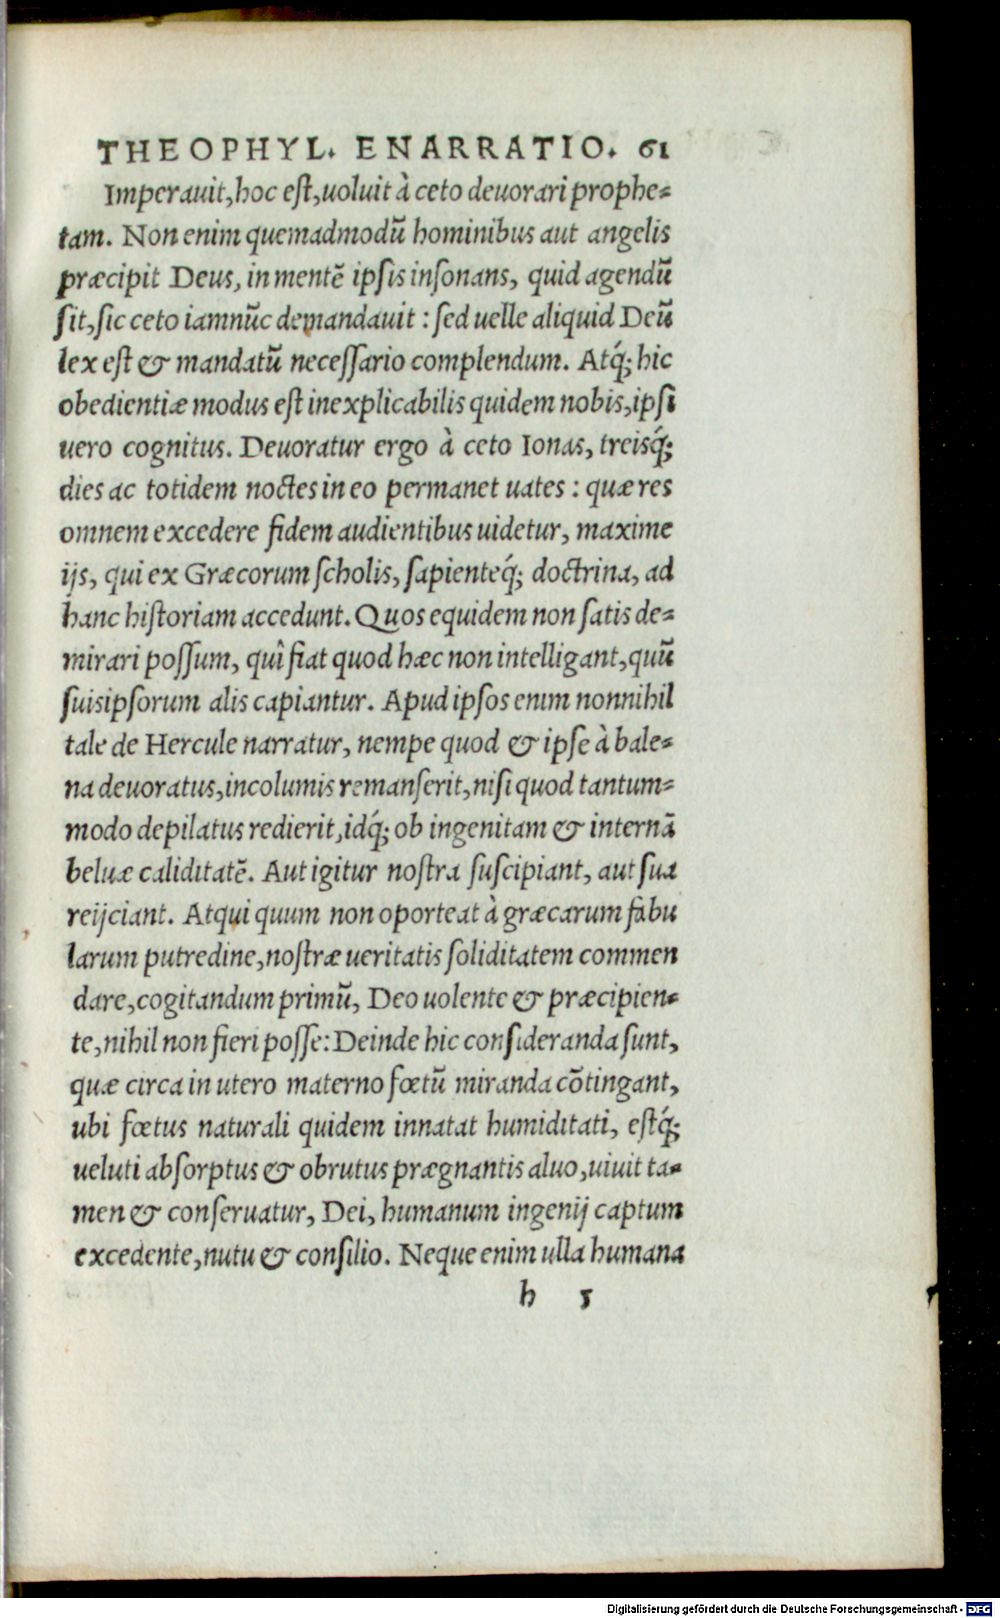 THEOPHYL. ENARRATIO. 61
Imperauit, hoc est, uoluit à ceto deuorari prophe-
tam. Non enim quemadmodũ hominibus aut angelis
præcipit Deus, in mentẽ ipsis insonans, quid agendũ
sit, sic ceto iamnũc demandauit : sed uelle aliquid Deũ
lex est & mandatũ necessario complendum. Atq́; hic
obedientiæ modus est inexplicabilis quidem nobis, ipsi
uero cognitus. Deuoratur ergo à ceto Ionas, treisq́;
dies ac totidem noctes in eo permanet uates : quæ res
omnem excedere fidem audientibus uidetur, maxime
ijs, qui ex Græcorum scholis, sapienteq́; doctrina, ad
hanc historiam accedunt. Quos equidem non satis de-
mirari possum, quî fiat quod hæc non intelligant, quũ
suis ipsorum alis capiantur. Apud ipsos enim nonnihil
tale de Hercule narratur, nempe quod & ipse à bale-
na deuoratus, incolumis remanserit, nisi quod tantum-
modo depilatus redierit, idq́; ob ingenitam & internã
beluæ caliditatẽ. Aut igitur nostra suscipiant, aut sua
reijciant. Atqui quum non oporteat à græcarum fabu
larum putredine, nostræ ueritatis soliditatem commen
dare, cogitandum primũ, Deo uolente & præcipien-
te, nihil non fieri posse: Deinde hic consideranda sunt,
quæ circa in utero materno fœtũ miranda cõtingant,
ubi fœtus naturali quidem innatat humiditati, estq́;
ueluti absorptus & obrutus prægnantis aluo, uiuit ta-
men & conseruatur, Dei, humanum ingenij captum
excedente, nutu & consilio. Neque enim ulla humana
h 5
Digitalisierung gefördert durch die Deutsche Forschungsgemeinschaft - DFG